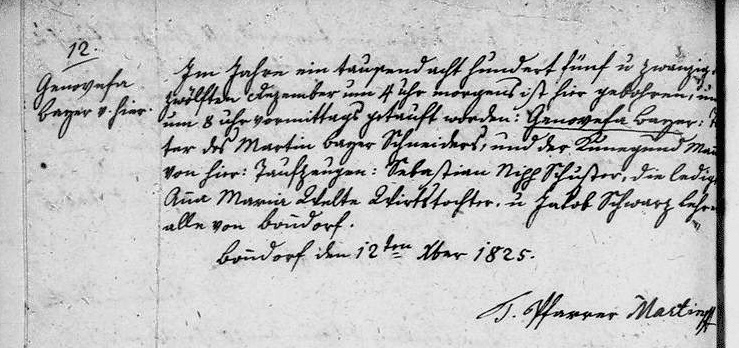 12.
Genovefa
Bayer v. hier.
Im Jahre ein tausend acht hundert fünf u zwanzig,
zwölften Dezember um 4 Uhr morgens ist hier gebohren, und
um 8 Uhr vormittags getauft worden: Genovefa Bayer: T
ter des Martin Bayer Schneiders, und der Kunegund
von hier: Taufzeugen: Sebastian Schuster, die ledige
Anna Maria Welte Wirtstochter, u Jakob Schwarz
alle von Bondorf.
Bondorf den 12ten Xber 1825.
T. Pfarrer Martin